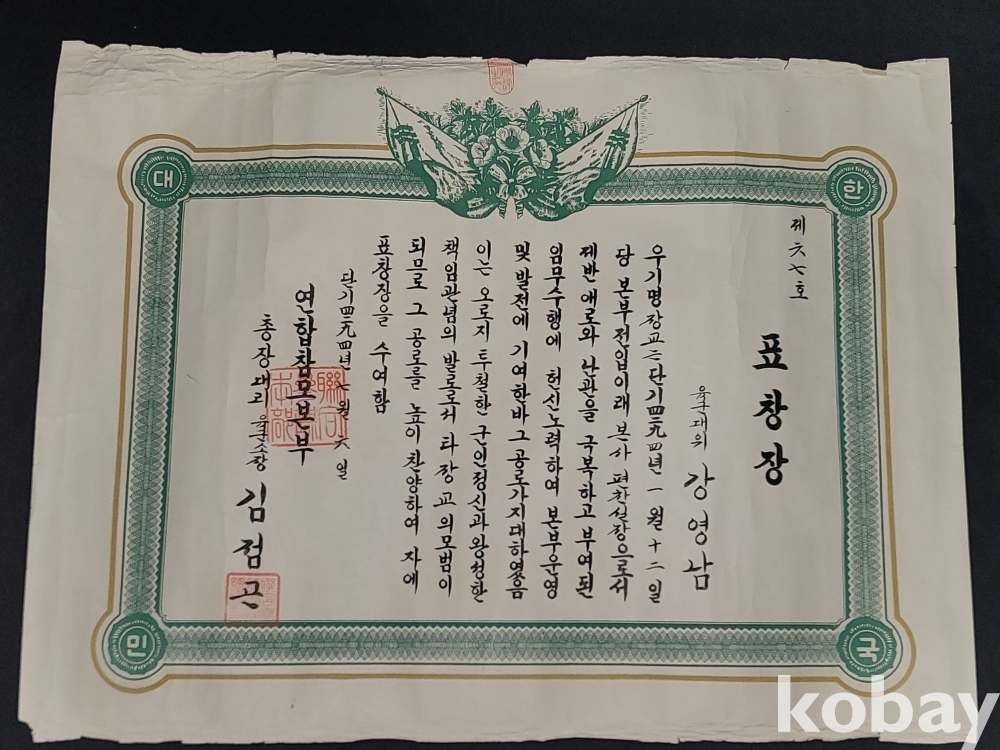 대
한
민
국
제六七호
표창장
육군대위 강영남
우기명장교는단기四二九四년 一월十二일
당 본부전입이래 본사 편찬실장으로서
제반 애로와 난관을 극복하고 부여된
임무수행에 헌신노력하여 본부운영
및 발전에 기여한바 그 공로가지대하였음
이는 오로지 투철한 군인정신과 왕성한
책임관념의 발로로서 타장교의모범이
되므로 그 공로를 높이 찬양하여 자에
표창장을 수여함
단기四二九四년七월六일
연합참모본부
총장대리 육군소장 김점곤
kobay